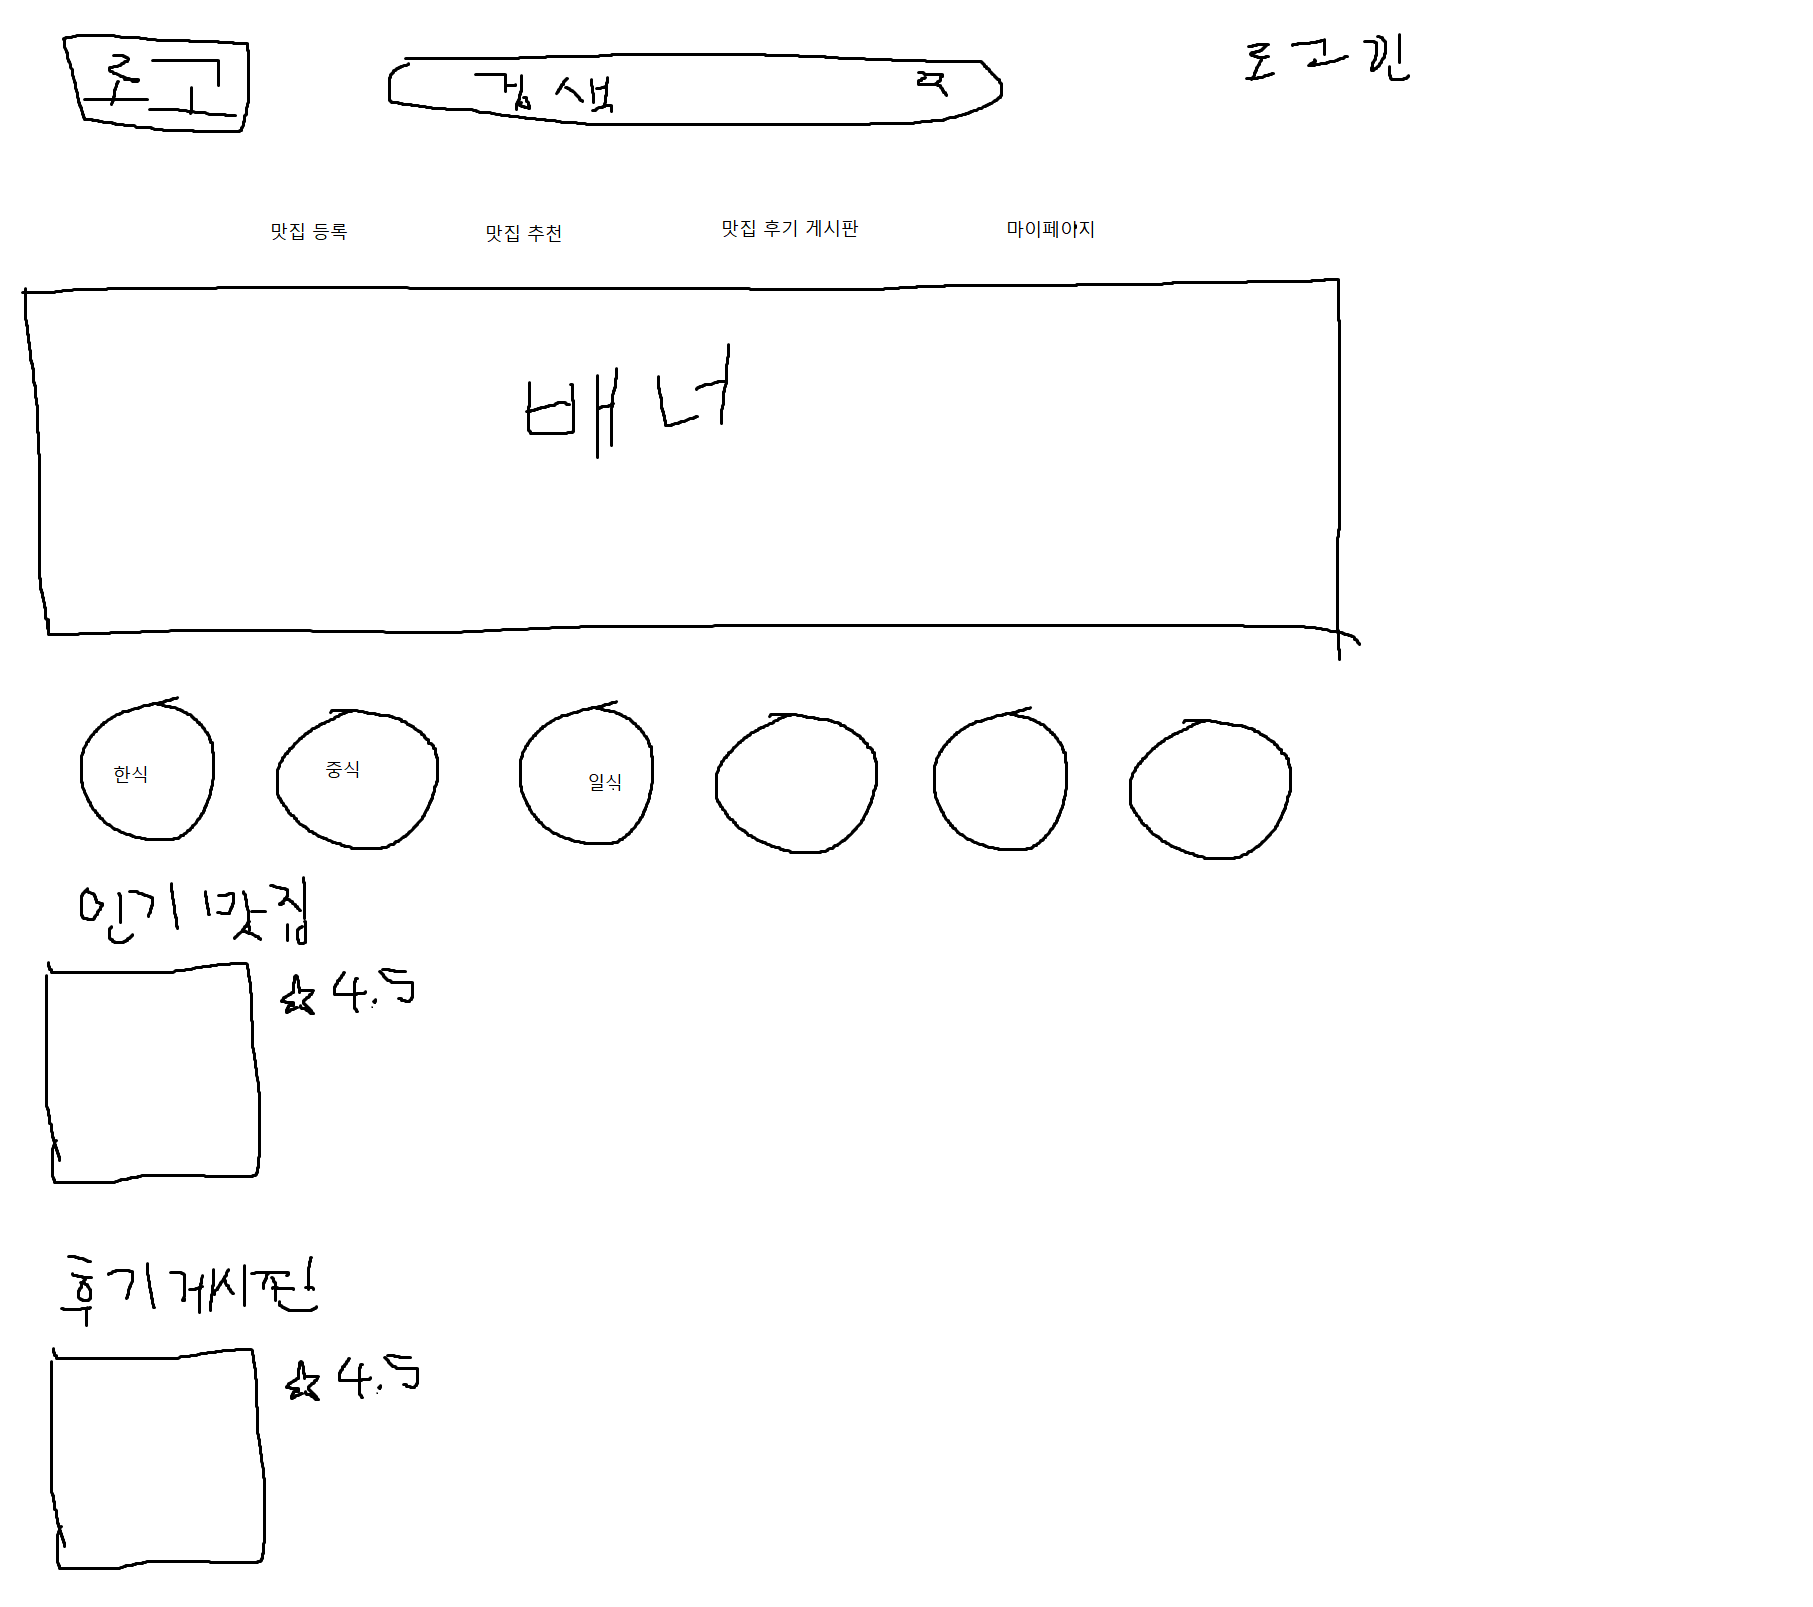 로고 검색 로그인
맛집 등록 맛집 추천 맛집 후기 게시판 마이페이지
배너
한식 중식 일식
인기 맛집
☆4.5
후기 게시판
☆4.5